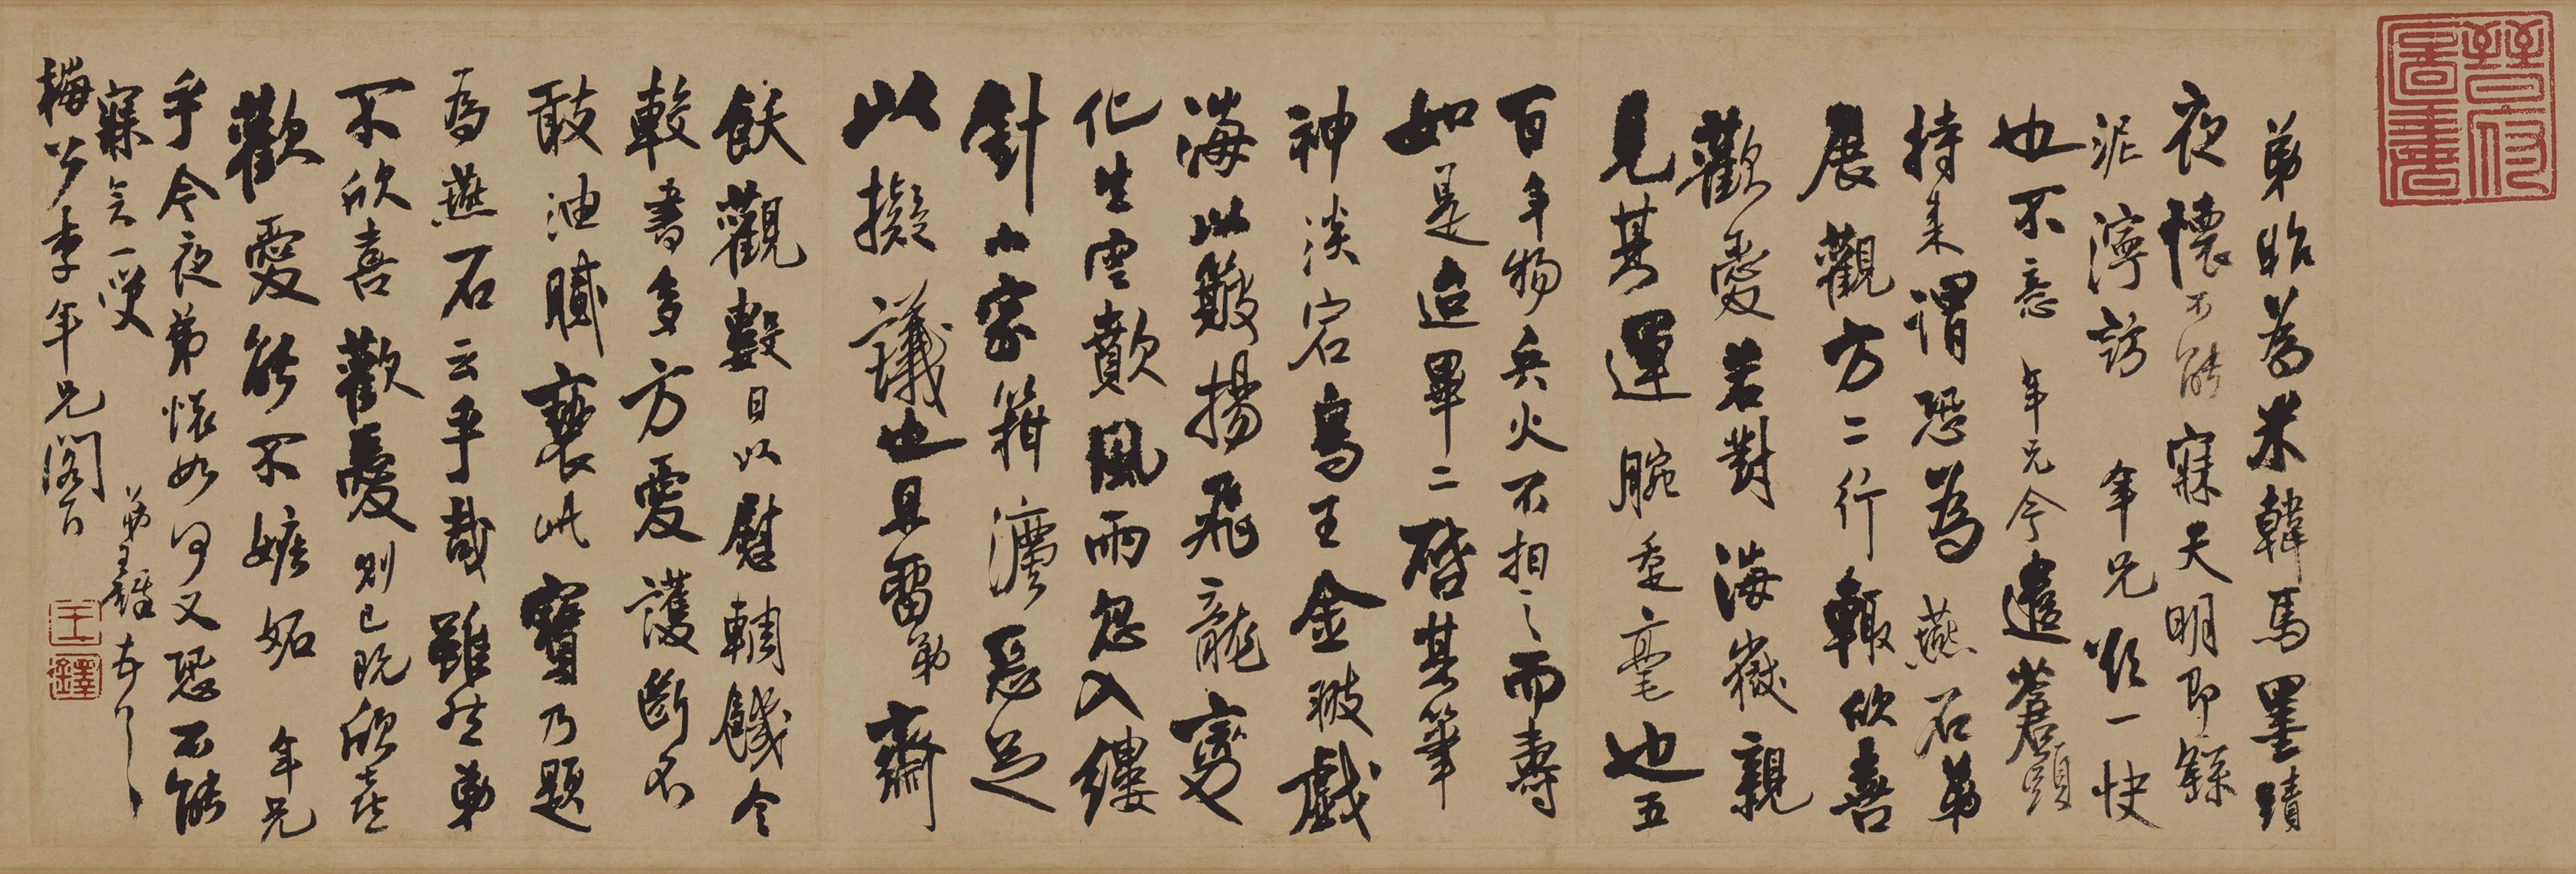 弟昨為米韓馬墨蹟
夜懷不能寐天明即錄
泥濘訪年兄欲一快
也不意年兄今遣蒼頭
持来謂恐為燕石弟
展觀方二行輙欣喜
歡愛若對海嶽親
見其運腕垂毫也五
百年物兵火不相之而壽
如是迨畢二啓其筆
神淡宕鳥王金戲
海以簸揚飛龍
化生雲歕風雨忽入縷
針小密箝濃惡足
此擬議也且留弟齋
飫觀數日以慰輖饑今
較書多方愛護斷不
敢油膩褻此寶乃題
為燕石云乎哉雖然弟
不欣喜歡愛則已既欣喜
歡愛能不嫉妬年兄
乎今夜弟懷如何又恐不能
寐矣一笑
弟王鐸
梅公李年兄閣下
王鐸